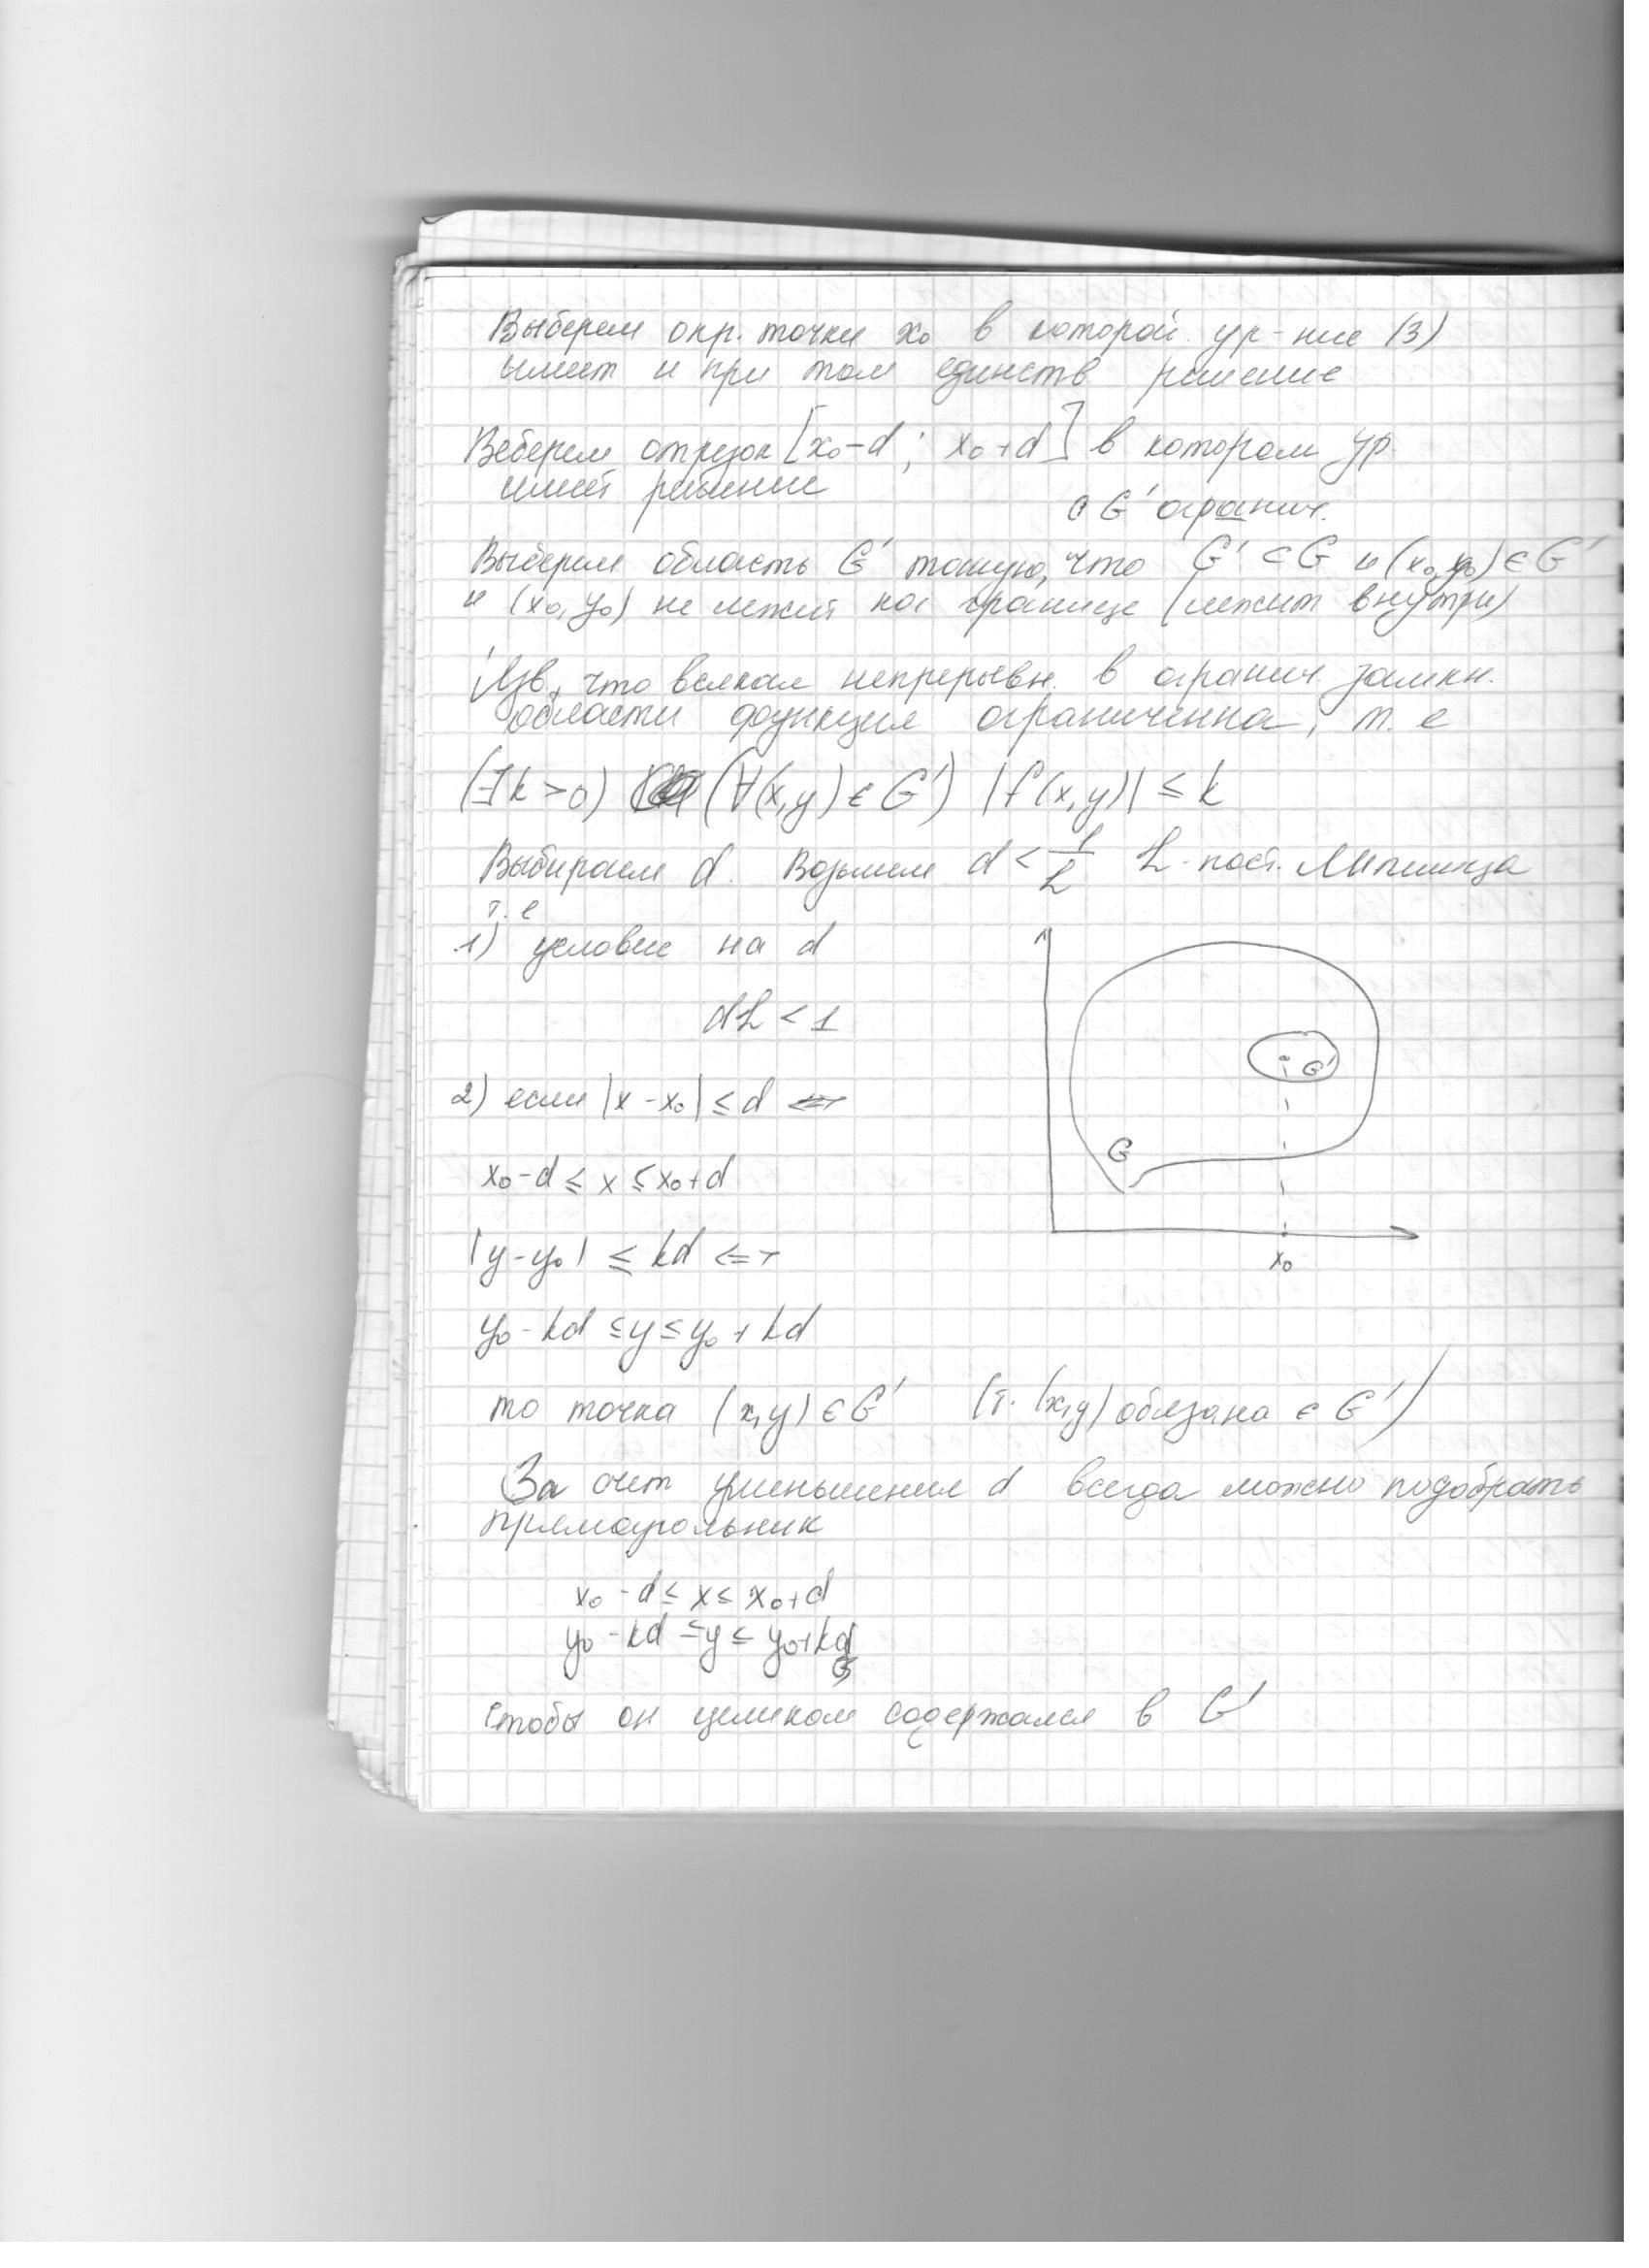 Выберем окр. точки x₀ в которой ур-ние (3)
имеет и при том единств решение
Веберем отрезок [x₀-d ; x₀+d] в котором ур.
имеет решение
G' огранич.
Выберем область G' такую, что G' ⊂ G и (x₀,y₀) ∈ G'
и (x₀,y₀) не лежит на границе (лежит внутри)
Изв, что всякая непрерывн. в огранич. замкн.
области функция ограниченна, т. е
(∃k>0) (∀(x,y) ∈ G') |f(x,y)| ≤ k
Выбираем d. Возьмем d < 1/L L - пост. Липшица
т. е
1) условие на d
dL < 1
2) если |x - x₀| ≤ d <=>
x₀-d ≤ x ≤ x₀+d
|y-y₀| ≤ kd <=>
y₀-kd ≤ y ≤ y₀+kd
G'
G
x₀
то точка (x,y) ∈ G' (т. (x,y) обязана ∈ G')
За счет уменьшения d всегда можно подобрать
прямоугольник
x₀-d ≤ x ≤ x₀+d
y₀-kd ≤ y ≤ y₀+kd
чтобы он целиком содержался в G'